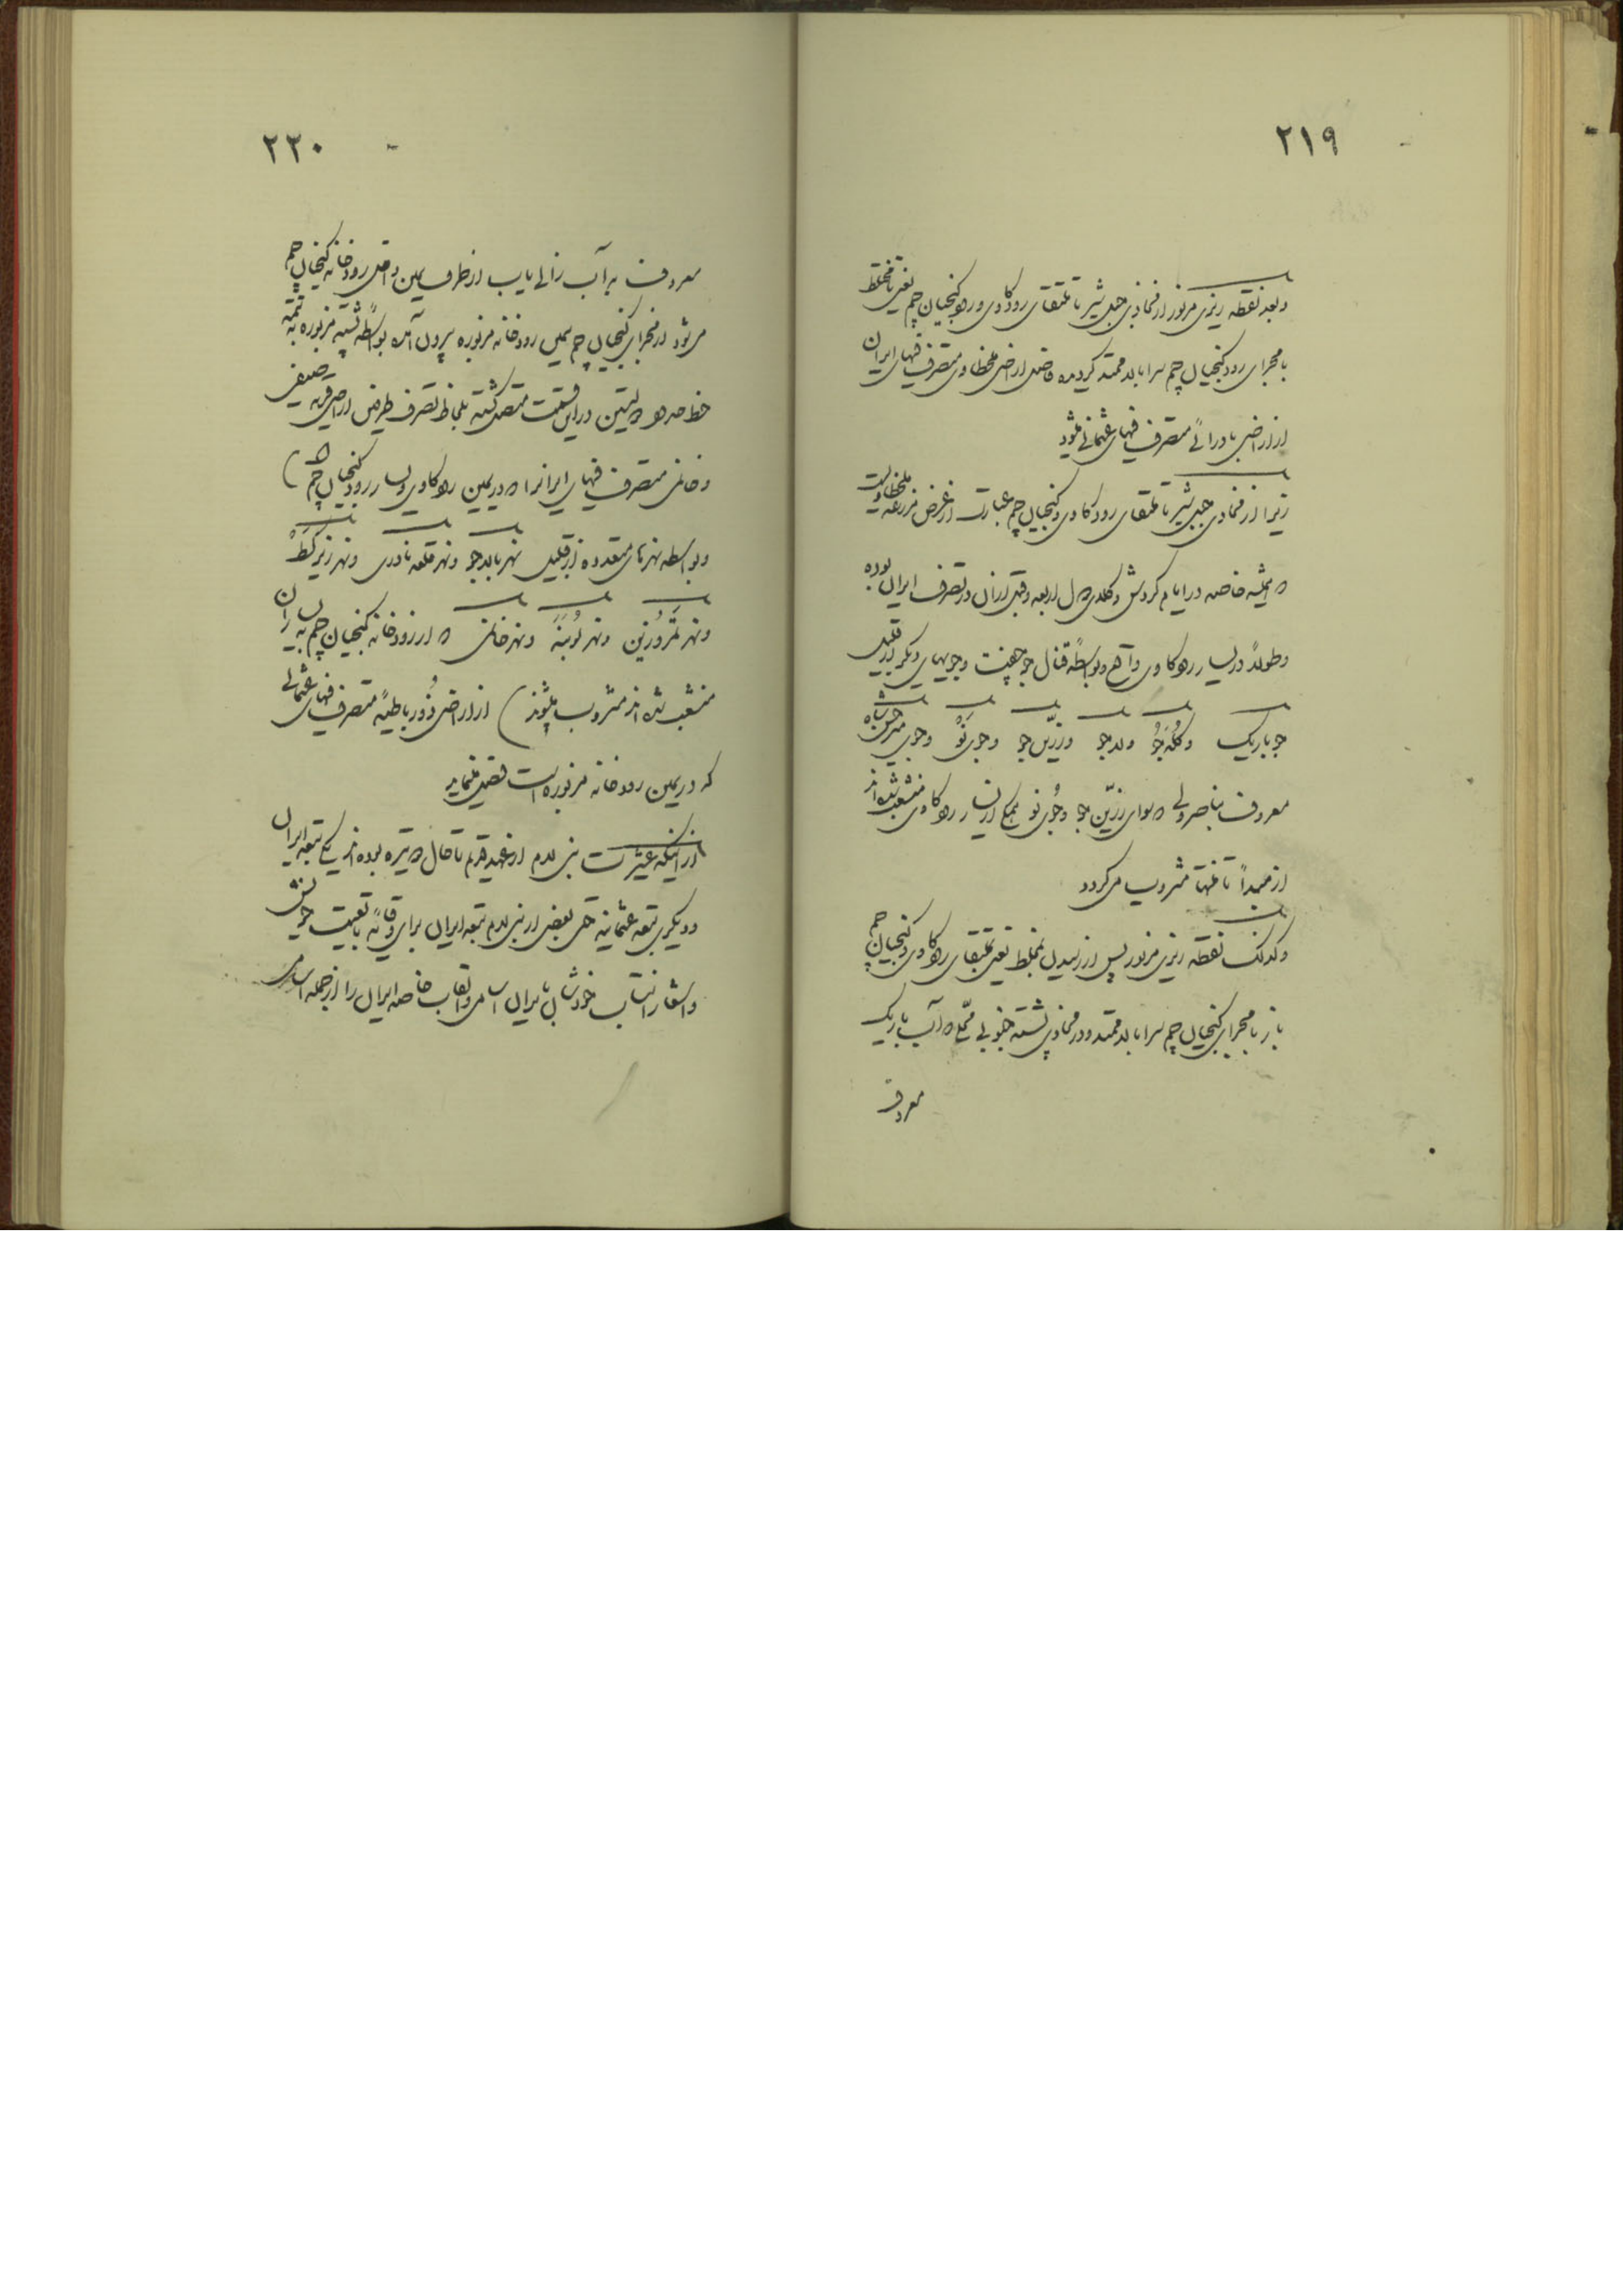 ۲۱۹
و بعد نقطه ریزی مزبور از محاذی جبل شیر تا ملتقای رود کاوی و رود کنجیان چم یعنی تا مختلط
با مجرای رود کنجیان چم سرابالا ممتد گردیده فاصل اراضی ملخطاوی متصرف فیهای ایران
از اراضی بادرائی متصرف فیهای عثمانی میشود
زیرا از محاذی جبل شیر تا ملتقای رود کاوی و کنجیان چم عبارت از عرض مزرعه ملخطاویست
که همیشه خاصه در ایام گردش وکلای دول اربعه و قبل از آن در تصرف ایران بوده
و طولاً در یسار رود کاوی واقع و بواسطه قنال جوجهنت و جویهای دیگر از قبیل
جوباریک و کله‌جو و لدجو و زرّین جو و جوی نَوْ و جوی میرحسن شاه
معروف بناصرولی که سوای زرّین جو و جوی نو همگی از یسار رود کاوی منشعب شده‌اند
از مبدأ تا منتها مشروب میگردد
وکذلک نقطه ریزی مزبور پس از رسیدن بمختلط یعنی بملتقای رود کاوی و کنجیان چم
باز با مجرای کنجیان چم سرابالا ممتد و در محاذی پشته جنوبی محلّی که آب باریک
معروف
۲۲۰
معروف به آب زالی یاب از طرف یمین داخل رودخانه کنجیان چم
میشود از مجرای کنجیان چم بیمین رودخانه مزبوره بیرون آمده بواسطه پشته مزبوره به تتمه
خط حدود دولتین در این قسمت متصل گشته بلحاظ تصرف طرفین اراضی قریه صیفی
و خانی متصرف فیهای ایرانرا که در یمین رود کاوی و یسار رود کنجیان چم (که
و بواسطه نهرهای متعدده از قبیل نهر بالاجو و نهر قلعه نادری و نهر زیرکط
و نهر تمروزین و نهر لوبنه و نهر خانی که از رودخانه کنجیان چم به یسار آن
منشعب شده‌اند مشروب میشوند) از اراضی دُور باطیه متصرف فیهای عثمانی
که در یمین رودخانه مزبوره است تفصیل مینماید
از اینکه عشیرت بنی لام از عهد قدیم تا حال دو تیره بوده‌اند یکی تبعه ایران
و دیگری تبعه عثمانیه حتی بعضی از بنی لام تبعه ایران برای وقایه تابعیت خویش
و اشعار انتساب خودشان بایران اسامی و القاب خاصه ایران را از جمله اسامی